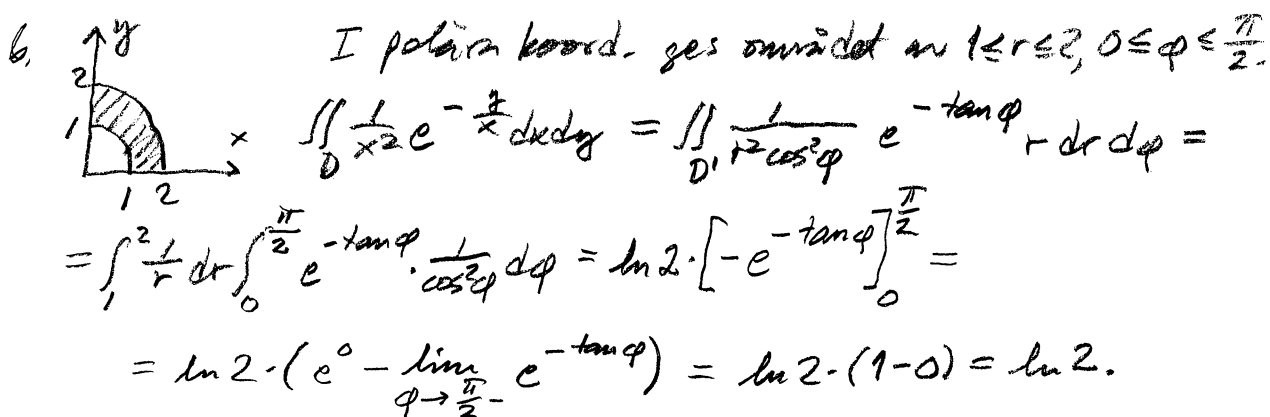 6. y 2 1 x 1 2 I polära koord. ges området av 1≤r≤2, 0≤φ≤π/2.
∬_D 1/x² e^(-y/x) dxdy = ∬_D' 1/(r²cos²φ) e^(-tanφ) r dr dφ =
= ∫_1^2 1/r dr ∫_0^(π/2) e^(-tanφ) · 1/cos²φ dφ = ln 2 · [-e^(-tanφ)]_0^(π/2) =
= ln 2 · (e^0 - lim_(φ→π/2-) e^(-tanφ)) = ln 2 · (1-0) = ln 2.